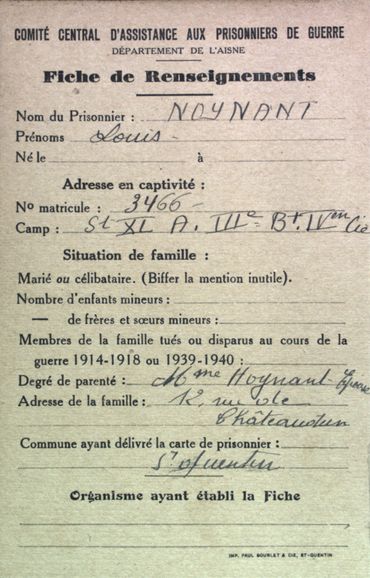 COMITÉ CENTRAL D'ASSISTANCE AUX PRISONNIERS DE GUERRE
DÉPARTEMENT DE L'AISNE
Fiche de Renseignements
Nom du Prisonnier : NOYNANT
Prénoms Louis
Né le à
Adresse en captivité :
No matricule : 3466
Camp : St XI A. IIIe Bt. IVen Cie
Situation de famille :
Marié ou célibataire. (Biffer la mention inutile).
Nombre d'enfants mineurs :
— de frères et sœurs mineurs :
Membres de la famille tués ou disparus au cours de la
guerre 1914-1918 ou 1939-1940 :
Degré de parenté : Mme Noynant Epouse
Adresse de la famille : 12, rue de
Châteaudun
Commune ayant délivré la carte de prisonnier :
St Quentin
Organisme ayant établi la Fiche
IMP. PAUL BOURLET & CIE, ST-QUENTIN